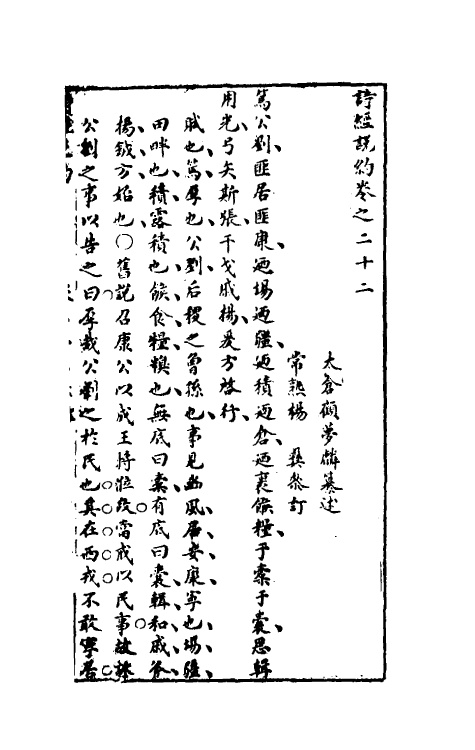 詩經說約卷之二十二
太倉顧夢麟纂述
常熟楊彝叅訂
篤公劉匪居匪康迺場迺疆迺積迺倉迺裹餱糧于橐于囊思輯
用光弓矢斯張干戈戚揚爰方啟行
賦也篤厚也公劉后稷之曾孫也事見豳風居安康寧也場疆
田畔也積露積也餱食糧糗也無底曰橐有底曰囊輯和戚斧
揚鉞方始也○舊說召康公以成王將涖政當戒以民事故詠
公劉之事以告之曰厚哉公劉之於民也其在西戎不敢寧居